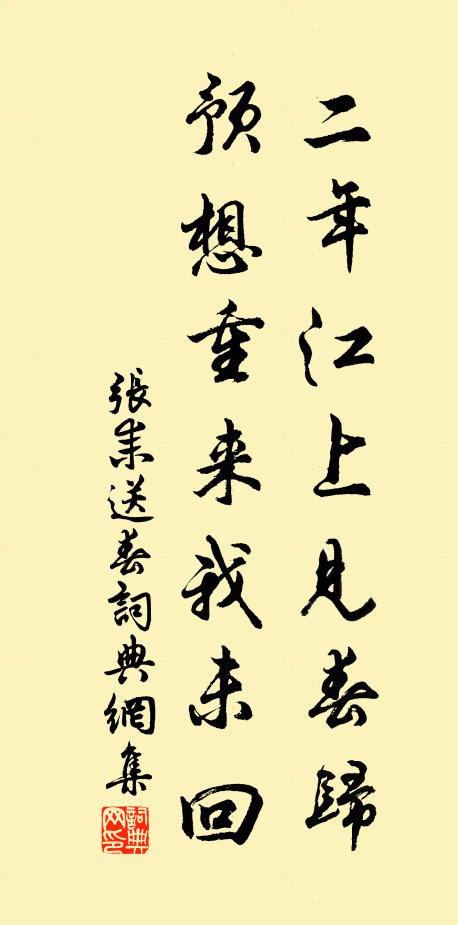 二年江上見春歸
預想重来我未回
張耒送春詞典網集
詞典网印